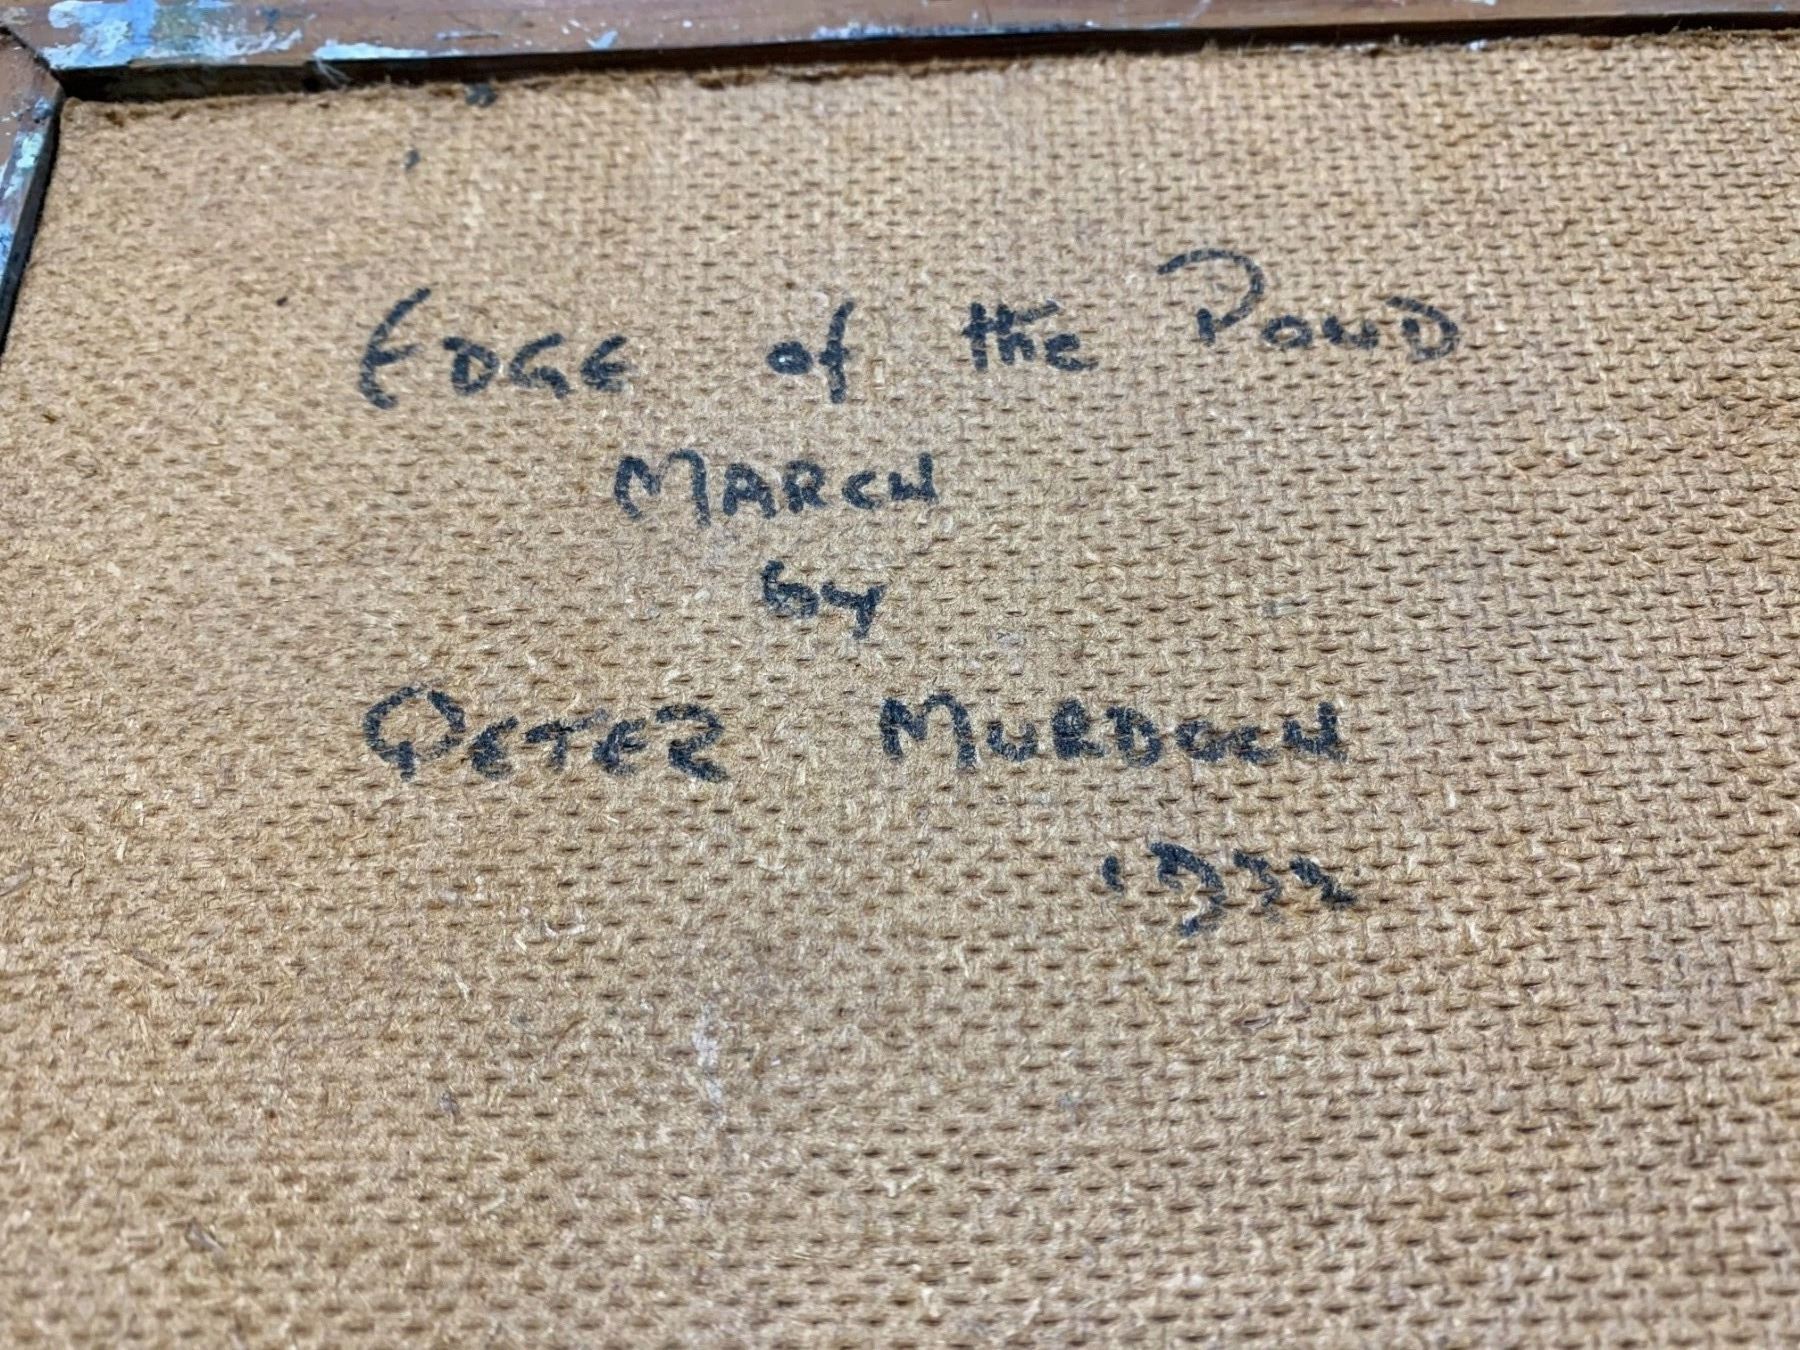 EDGE of the POND
MARCH
by
PETER MURDOCH